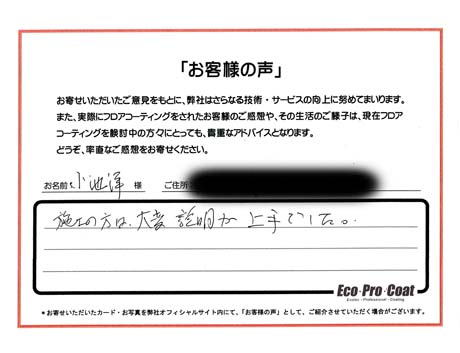 「お客様の声」
お寄せいただいたご意見をもとに、弊社はさらなる技術・サービスの向上に努めてまいります。
また、実際にフロアコーティングをされたお客様のご感想や、その生活のご様子は、現在フロア
コーティングを検討中の方々にとっても、貴重なアドバイスとなります。
どうぞ、率直なご感想をお寄せください。
お名前 小池洋 様 ご住所
施工の方は、大変説明が上手でした。
Eco・Pro・Coat
Ecotec - Professional - Coating
*お寄せいただいたカード・お写真を弊社オフィシャルサイト内にて、「お客様の声」として、ご紹介させていただく場合がございます。